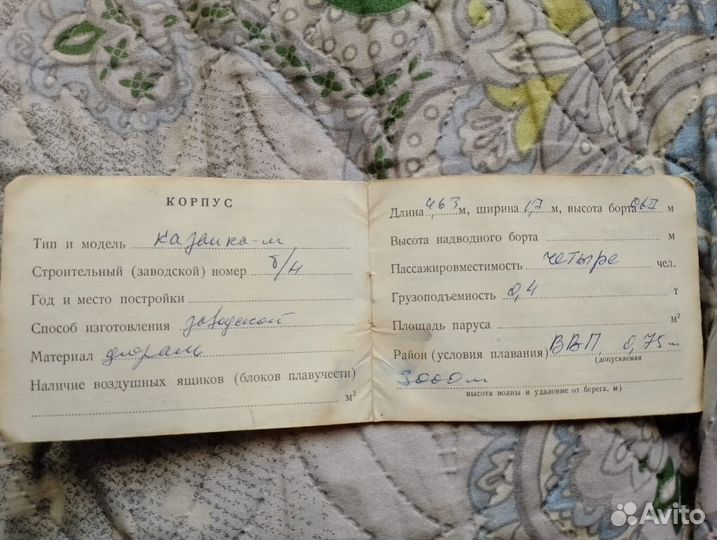 КОРПУС
Тип и модель казанка-м
Строительный (заводской) номер б/н
Год и место постройки
Способ изготовления заводской
Материал дюраль
Наличие воздушных ящиков (блоков плавучести)
м³
Длина 4,63 м, ширина 1,7 м, высота борта м
Высота надводного борта м
Пассажировместимость четыре чел.
Грузоподъемность 0,4 т
Площадь паруса м²
Район (условия плавания) ВВП, 0,75 м
(допускаемая
3000 м
высота волны и удаление от берега, м)
Avito